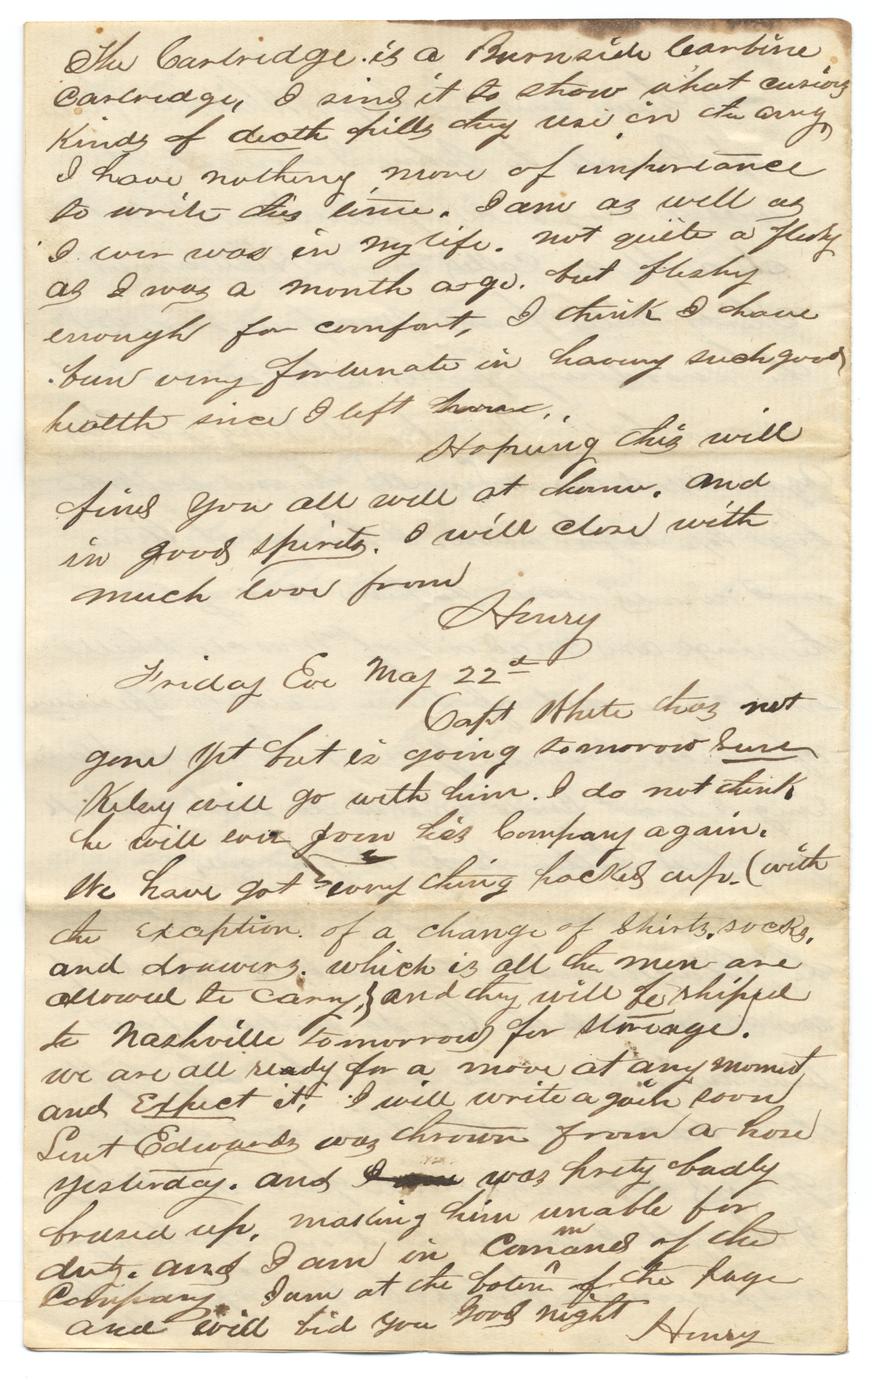 The Cartridge is a Burnside Carbine
Cartridge, I send it to show what curious
Kinds of death pills they use in the army,
I have nothing more of importance
to write this time. I am as well as
I ever was in my life. not quite a fleshy
as I was a month ago. but fleshy
enough for comfort, I think I have
been very fortunate in having such good
health since I left home.
Hopeing this will
find you all well at home. and
in good spirits. I will close with
much love from
Henry
Friday Eve May 22d
Capt White has not
gone yet but is going tomorow sure
Kelsey will go with him. I do not think
he will ever join his Company again.
We have got every thing packed up. (with
the exception of a change of shirts, socks,
and drawers. which is all the men are
allowed to carry,) and they will be shiped
to Nashville tomorrow for storeage.
we are all ready for a move at any moment
and Expect it. I will write again soon
Leut Edwards was thrown from a hose
yesterday. and was prety badly
brused up, making him unable for
duty. and I am in Command of the
Company. I am at the botom of the page
and will bid you good night
Henry